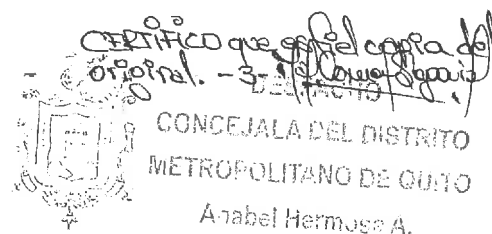 CERTIFICO que es fiel copia del
original. -3-
DESPACHO
CONCEJALA DEL DISTRITO
METROPOLITANO DE QUITO
Anabel Hermosa A.